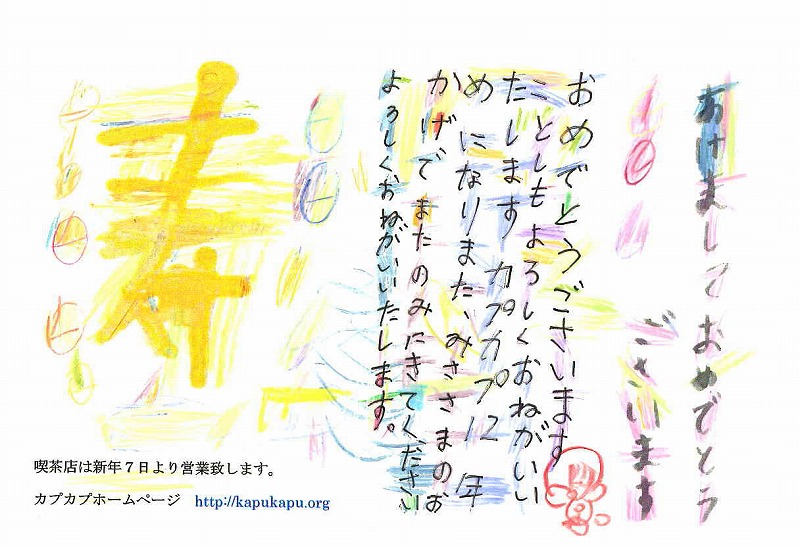 あけましておめでとう
ございます
おめでとうごさいます
ことしもよろしくおねがいい
たします カプカプ12年
め になりまた、みささまのお
かげでまたのみにきてください
よろしくおねがいいたします。
寿
喫茶店は新年７日より営業致します。
カプカプホームページ http://kapukapu.org